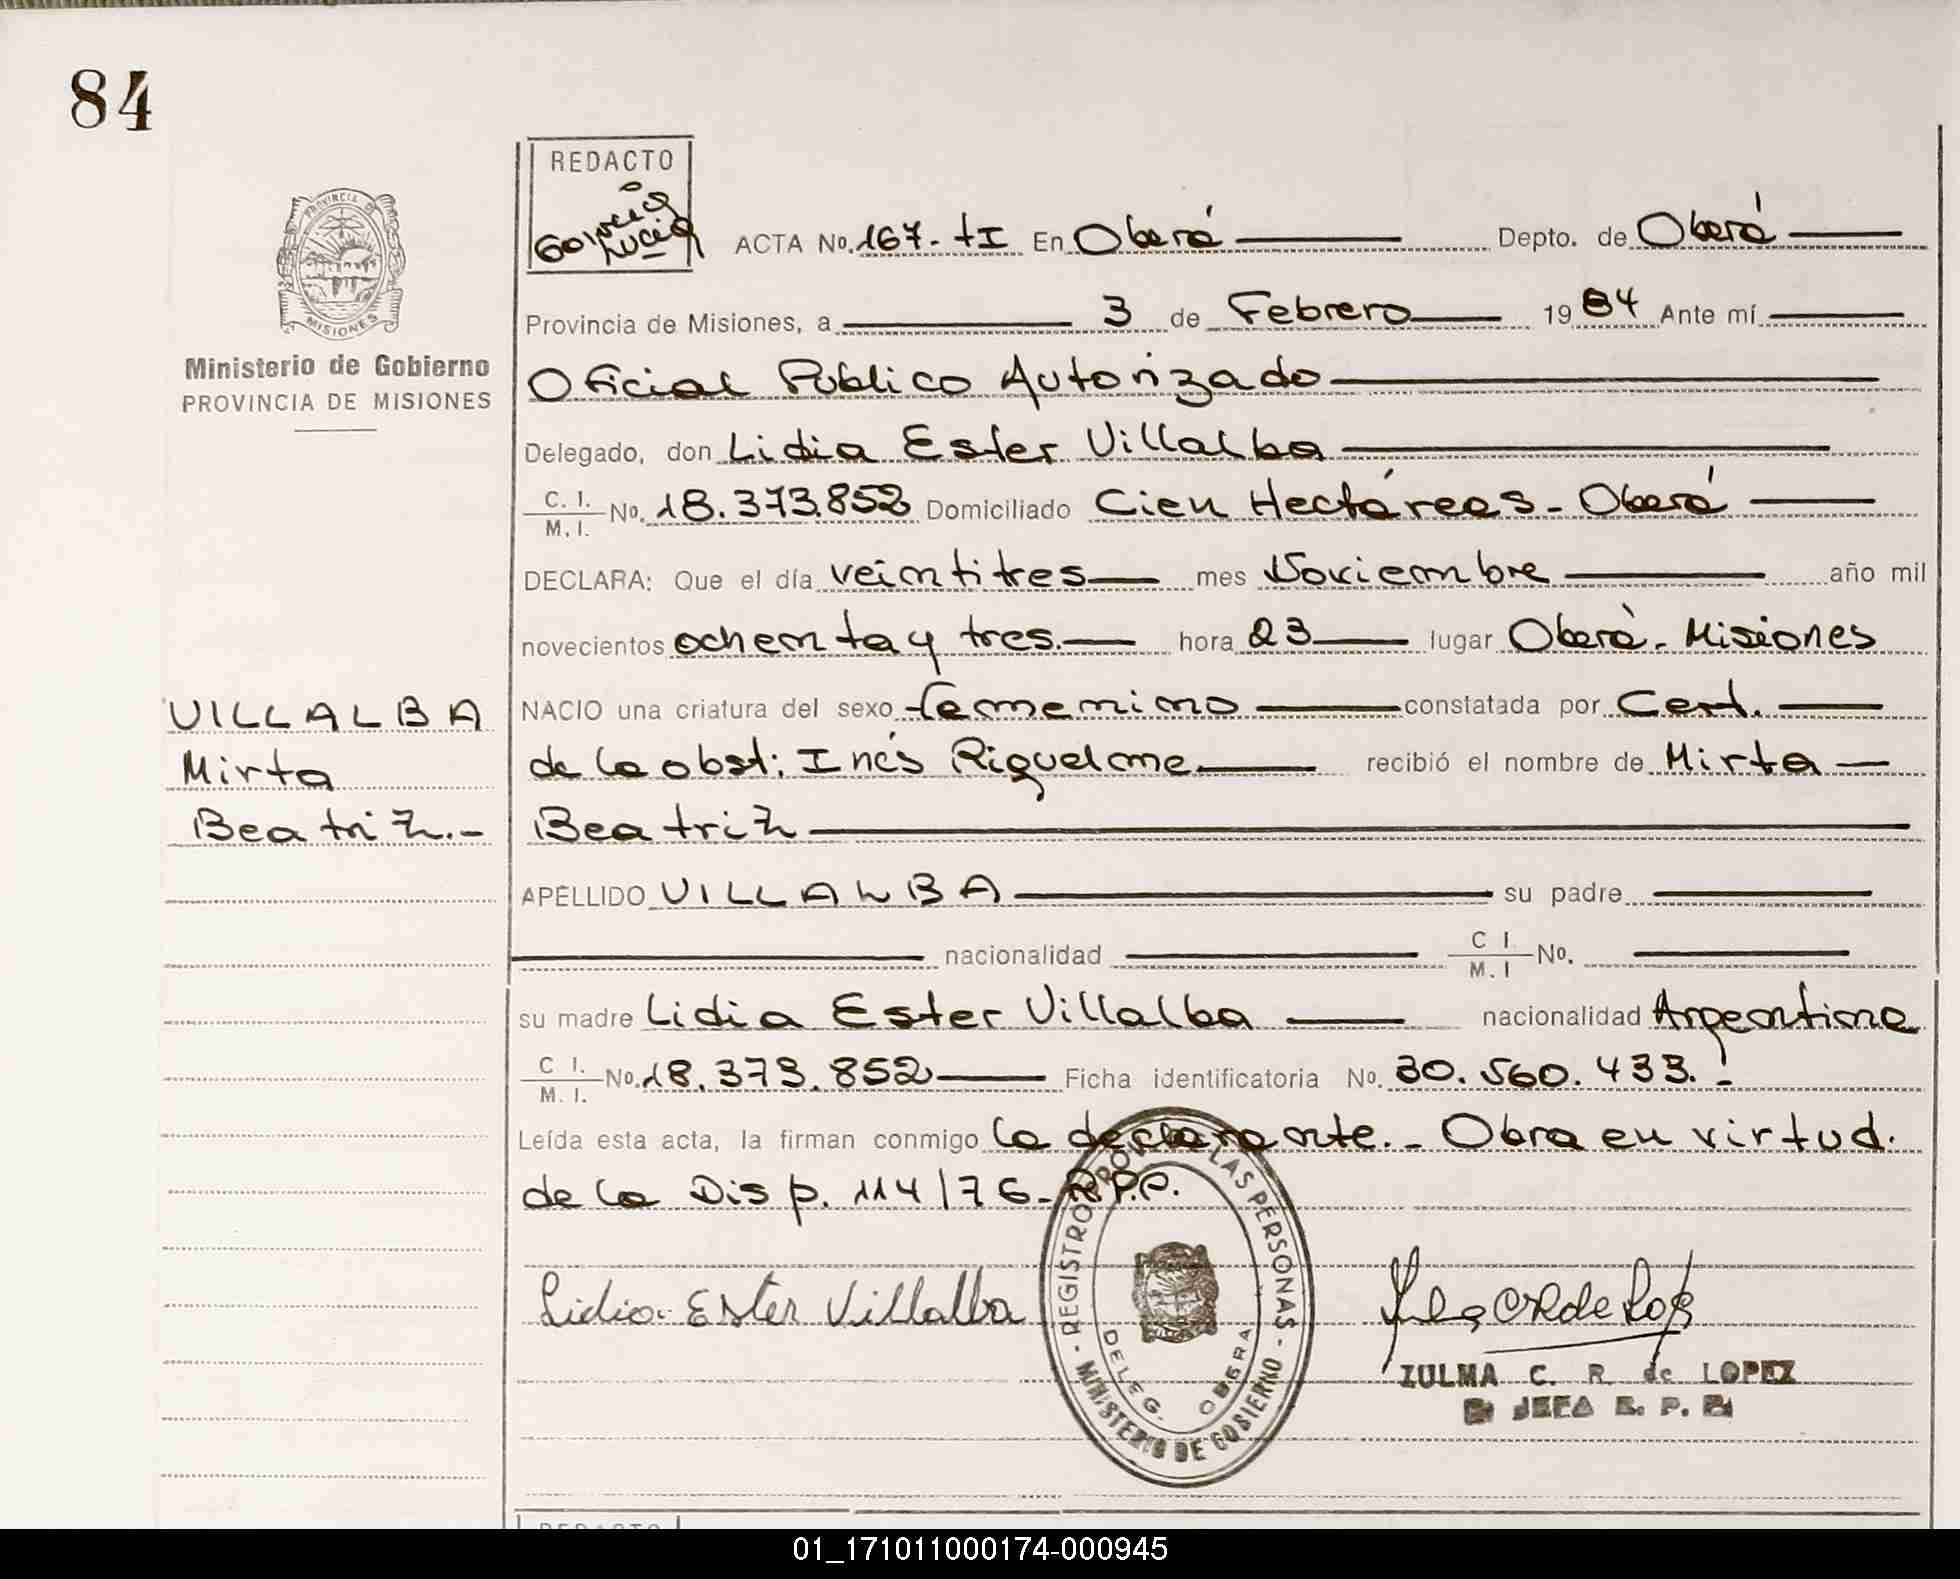 84
REDACTO
ACTA No. 167-tI En Oberá Depto. de Oberá
PROVINCIA DE
MISIONES
Provincia de Misiones, a 3 de Febrero 1984 Ante mí
Ministerio de Gobierno
PROVINCIA DE MISIONES
Oficial Publico Autorizado
Delegado, don Lidia Ester Villalba
C. I.
M. I. No. 18.373.852 Domiciliado Cien Hectáreas - Oberá
DECLARA: Que el día veintitres mes Noviembre año mil
novecientos ochenta y tres. hora 23 lugar Oberá. Misiones
VILLALBA
Mirta
Beatriz.-
NACIO una criatura del sexo femenino constatada por Cert.
de la obst: Inés Riquelme recibió el nombre de Mirta
Beatriz
APELLIDO VILLALBA su padre
nacionalidad C I M. I No.
su madre Lidia Ester Villalba nacionalidad Argentina
C I.
M. I. No. 18.373.852 Ficha identificatoria No. 30.560.433.
Leída esta acta, la firman conmigo la declarante.- Obra en virtud.
de la Disp. 114/76-R.P.P.
Lidia Ester Villalba
REGISTRO PROV. DE LAS PERSONAS
MINISTERIO DE GOBIERNO
DELEG. OBERA
ZULMA C. R. de LOPEZ
JEFA R. P. P.
REDACTO
01_171011000174-000945